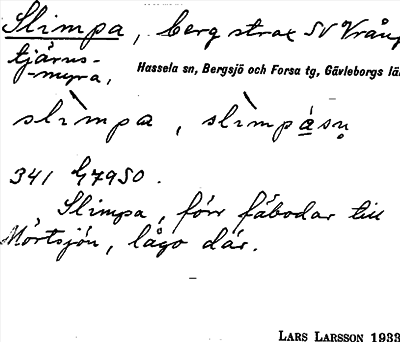 Slimpa, berg strax SV Vrång-
tjärns-
-myra,
Hassela sn, Bergsjö och Forsa tg, Gävleborgs lä
slìmpa, slìmpásn̥
341 G79SO.
Slimpa, förr fäbodar till
Mörtsjön, lågo där.
LARS LARSSON 1933